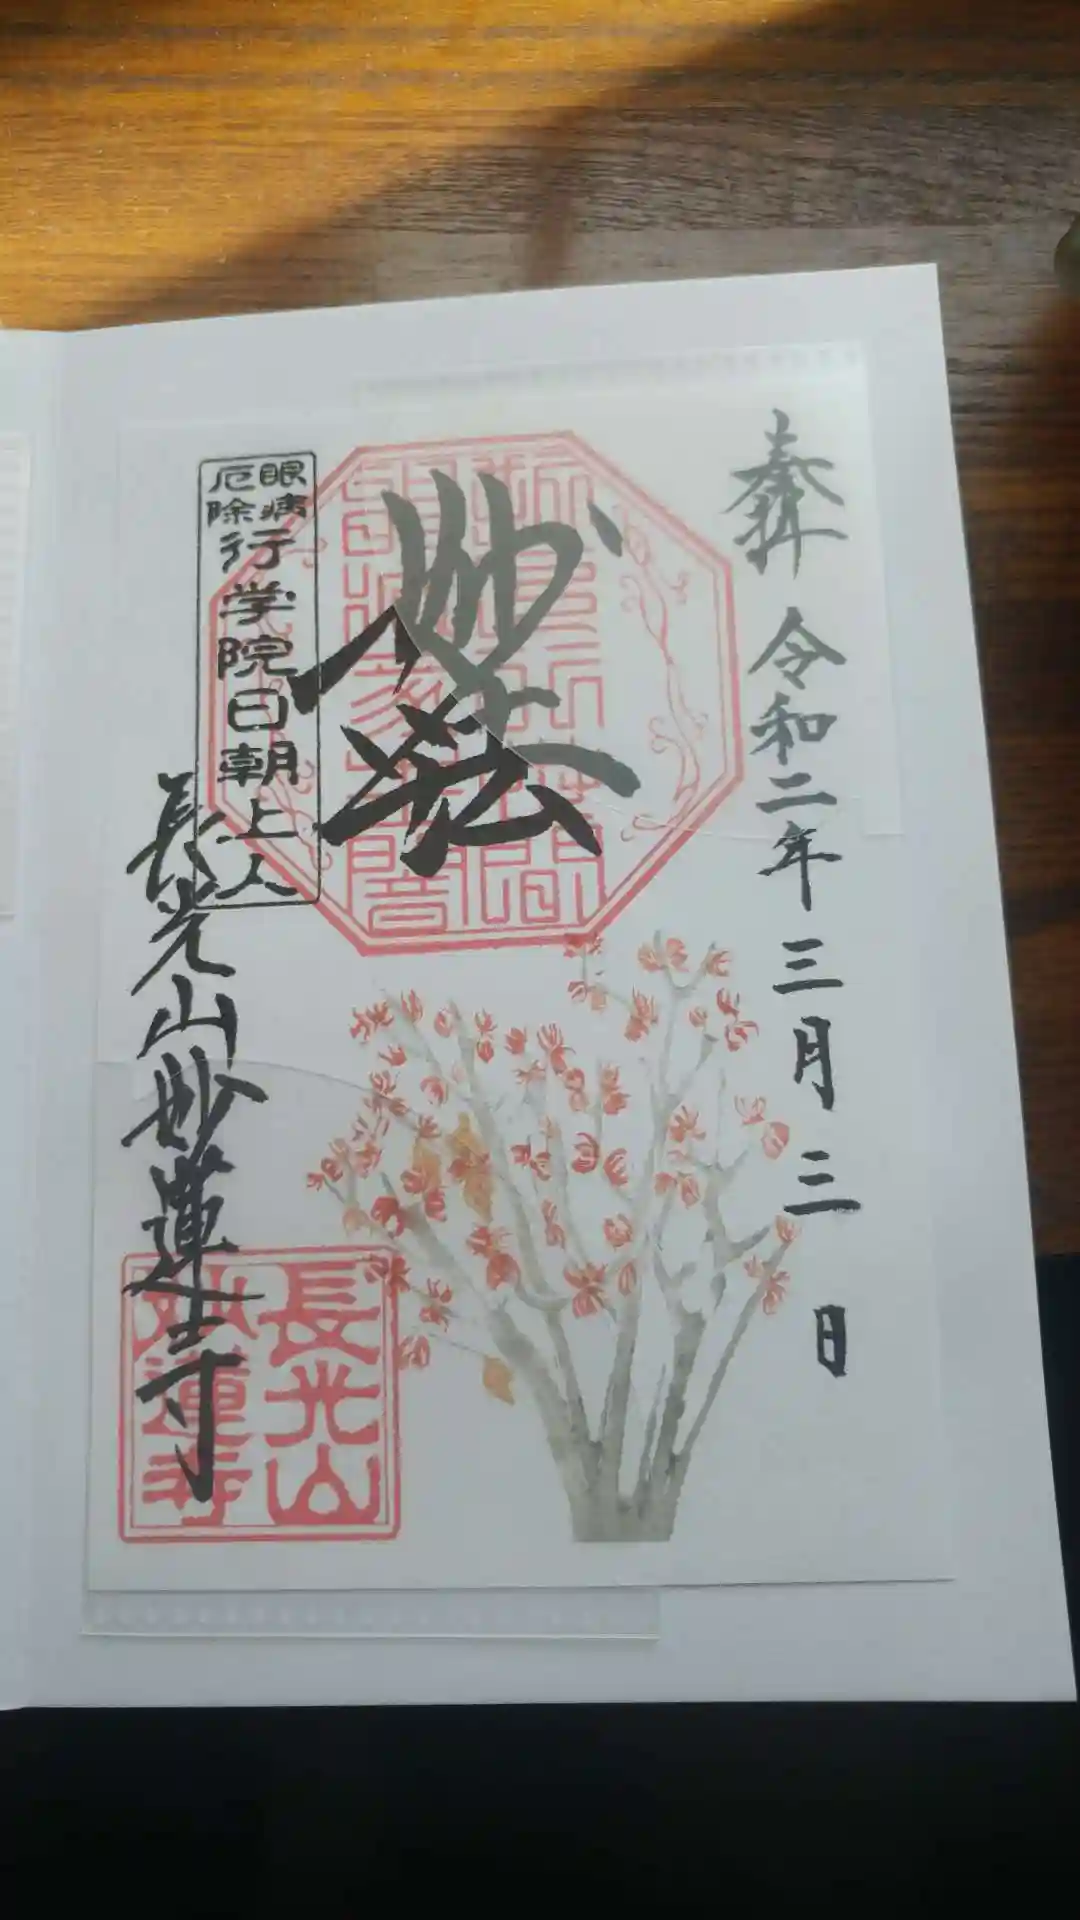 奉拝
令和二年三月三日
妙法
眼病
厄除
行学院日朝上人
長光山妙蓮寺
長光山
妙蓮寺